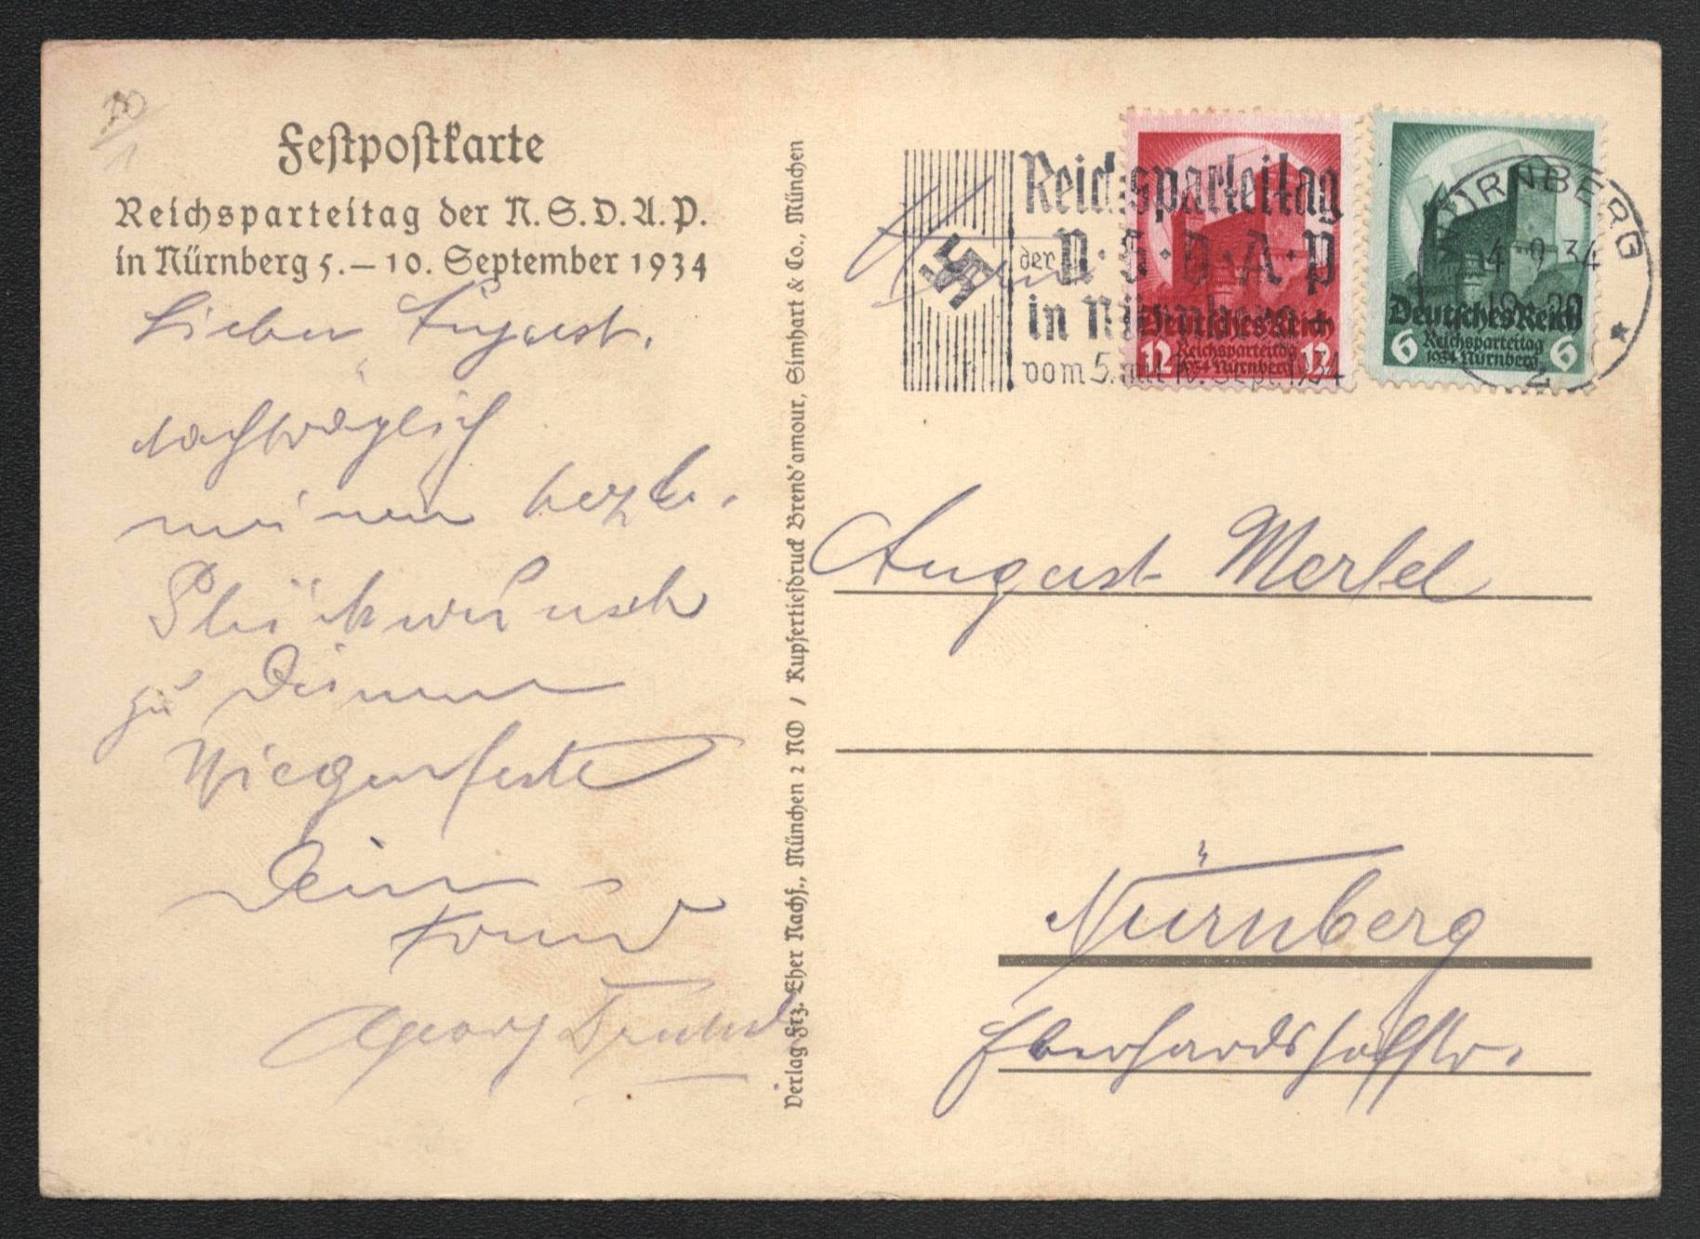 Festpostkarte
Reichsparteitag der N.S.D.A.P.
in Nürnberg 5.–10. September 1934
Lieber August.
nachträglich
meinen herzl.
Glückwunsch
zu Deinem
Wiegenfeste
Dein
Freund
Georg
Verlag Frz. Eher Nachf., München 2 NO / Kupfertiefdruck Brend'amour, Simhart & Co., München
Herrn
Reichsparteitag
der N·S·D·A·P
in Nürnberg
vom 5. mit 10. Sept. 1934
Deutsches Reich
12 Reichsparteitag 12
1934 Nürnberg
NÜRNBERG
4-9.34
2
Deutsches Reich
6 Reichsparteitag 6
1934 Nürnberg
August Merkel
Nürnberg
Eberhardshofstr.